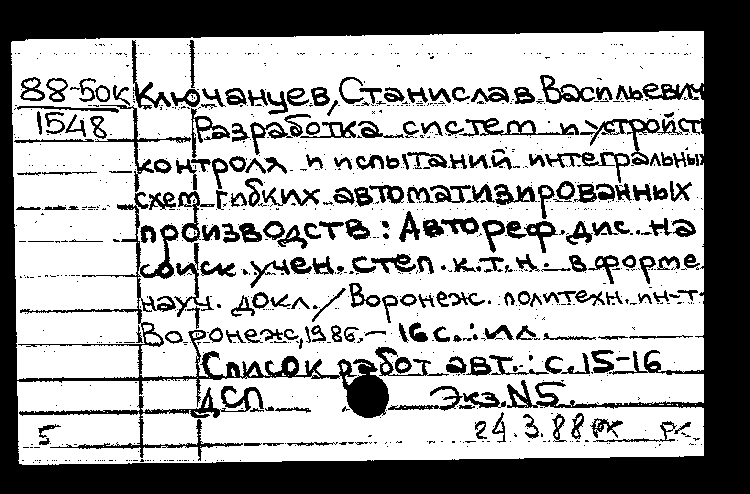 88-50к Ключанцев, Станислав Васильевич
1548 Разработка систем и устройств
контроля и испытаний интегральных
схем гибких автоматизированных
производств : Автореф. дис. на
соиск. учен. степ. к.т.н. в форме
науч. докл. / Воронеж. политехн. ин-т.
Воронеж, 1986. – 16 с. : ил.
Список работ авт. : с. 15-16
ДСП Экз. N5.
5 24.3.88 рк рк